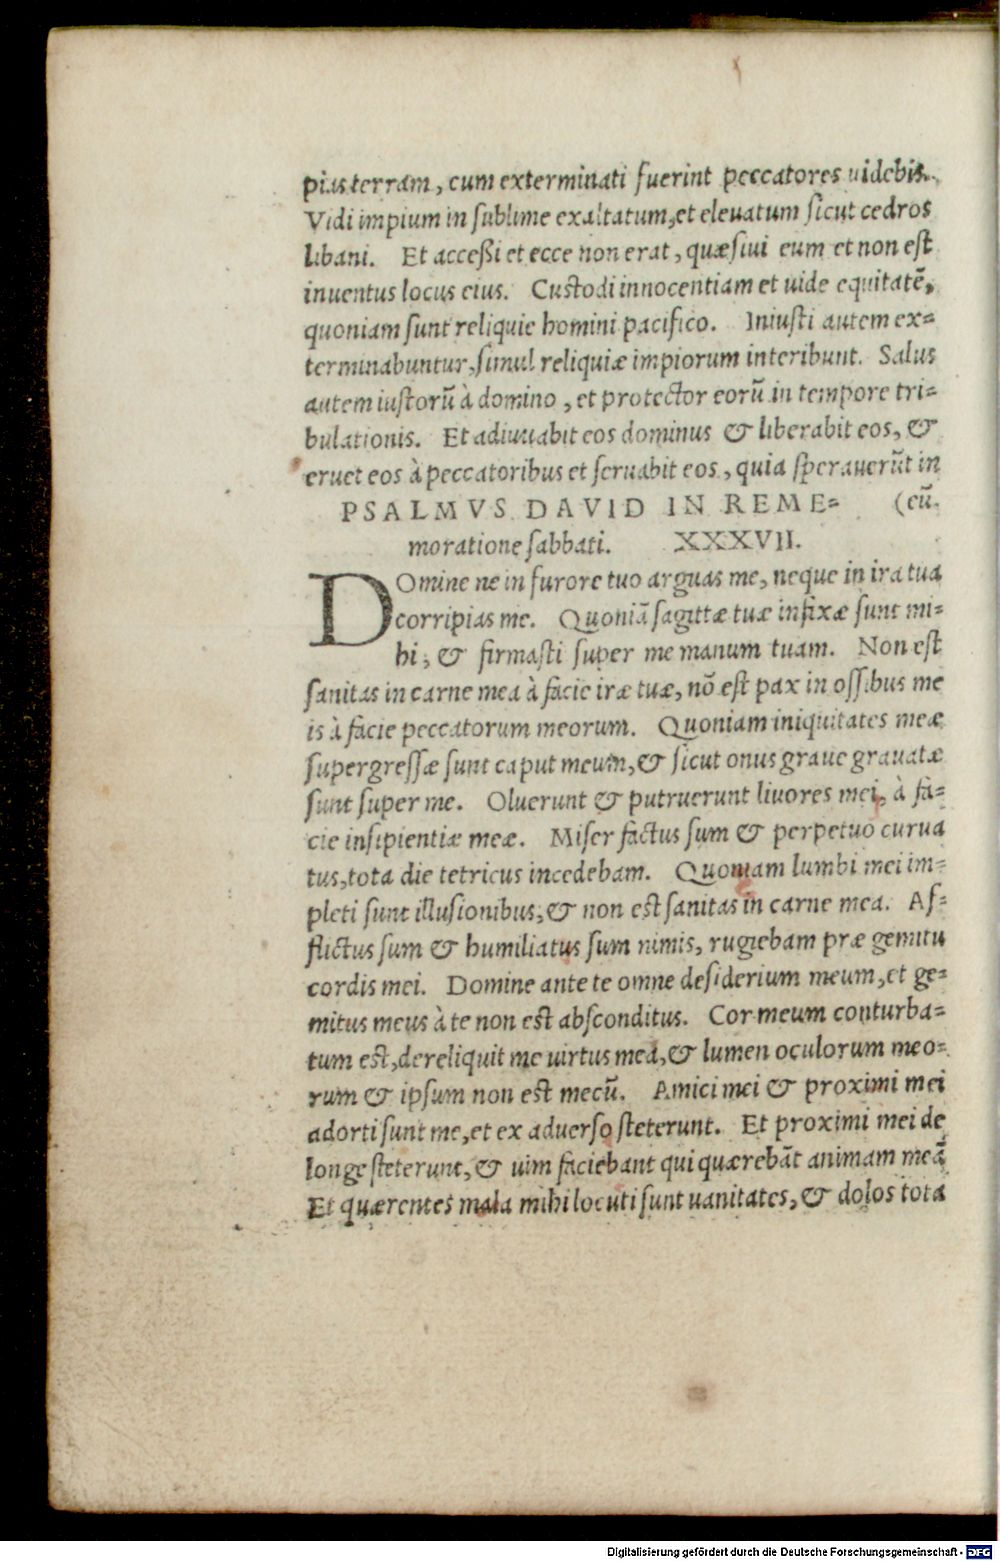 pias terram, cum exterminati fuerint peccatores uidebis.
Vidi impium in sublime exaltatum, et eleuatum sicut cedros
libani. Et accessi et ecce non erat, quæsiui eum et non est
inuentus locus eius. Custodi innocentiam et uide equitatē,
quoniam sunt reliquie homini pacifico. Iniusti autem ex=
terminabuntur, simul reliquiæ impiorum interibunt. Salus
autem iustorū à domino, et protector eorū in tempore tri=
bulationis. Et adiuuabit eos dominus & liberabit eos, &
eruet eos à peccatoribus et seruabit eos, quia sperauerūt in
PSALMVS DAVID IN REME= (eū.
moratione sabbati. XXXVII.
DOmine ne in furore tuo arguas me, neque in ira tua
corripias me. Quoniā sagittæ tuæ infixæ sunt mi=
hi, & firmasti super me manum tuam. Non est
sanitas in carne mea à facie iræ tuæ, nō est pax in ossibus me
is à facie peccatorum meorum. Quoniam iniquitates meæ
supergressæ sunt caput meum, & sicut onus graue grauatæ
sunt super me. Oluerunt & putruerunt liuores mei, à fa=
cie insipientiæ meæ. Miser factus sum & perpetuo curua
tus, tota die tetricus incedebam. Quoniam lumbi mei im=
pleti sunt illusionibus, & non est sanitas in carne mea. Af=
flictus sum & humiliatus sum nimis, rugiebam præ gemitu
cordis mei. Domine ante te omne desiderium meum, et ge=
mitus meus à te non est absconditus. Cor meum conturba=
tum est, dereliquit me uirtus mea, & lumen oculorum meo=
rum & ipsum non est mecū. Amici mei & proximi mei
adorti sunt me, et ex aduerso steterunt. Et proximi mei de
longe steterunt, & uim faciebant qui quærebāt animam meā
Et quærentes mala mihi locuti sunt uanitates, & dolos tota
Digitalisierung gefördert durch die Deutsche Forschungsgemeinschaft - DFG